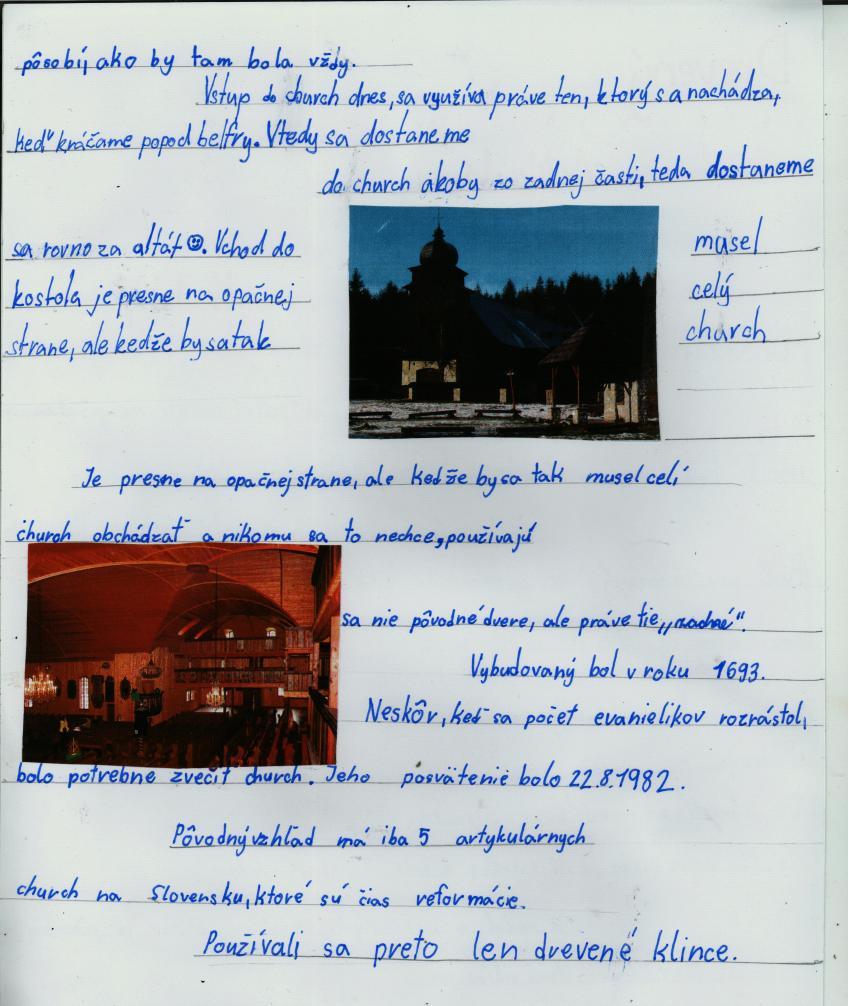 pôsobí, ako by tam bola vždy.
Vstup do church dnes, sa využíva práve ten, ktorý sa nachádza,
keď kráčame popod belfry. Vtedy sa dostaneme
do church akoby zo zadnej časti, teda dostaneme
sa rovno za altát ☺. Vchod do
musel
kostola je presne na opačnej
celý
strane, ale kedže by sa tak
church
Je presne na opačnej strane, ale kedže by sa tak musel celí
church obchádzať a nikomu sa to nechce, používajú
sa nie pôvodné dvere, ale práve tie „zadné".
Vybudovaný bol v roku 1693.
Neskôr, keď sa počet evanielikov rozrástol,
bolo potrebne zvečit church. Jeho posvätenie bolo 22.8.1982.
Pôvodný vzhľad má iba 5 artykulárnych
church na Slovensku, ktoré sú čias reformácie.
Používali sa preto len drevené klince.